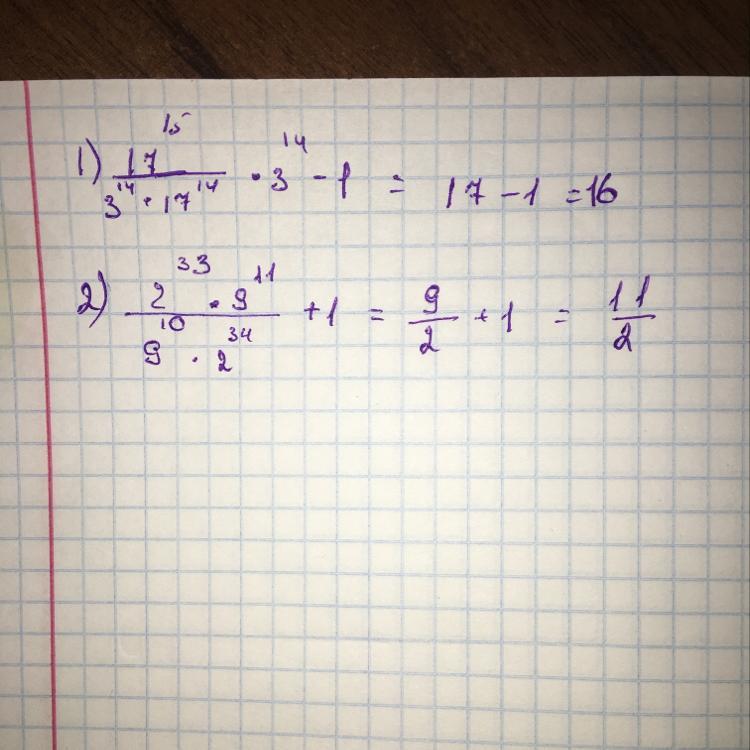 1) 17^15 / (3^14 · 17^14) · 3^14 − 1 = 17 − 1 = 16
2) (2^33 · 9^11) / (9^10 · 2^34) + 1 = 9/2 + 1 = 11/2